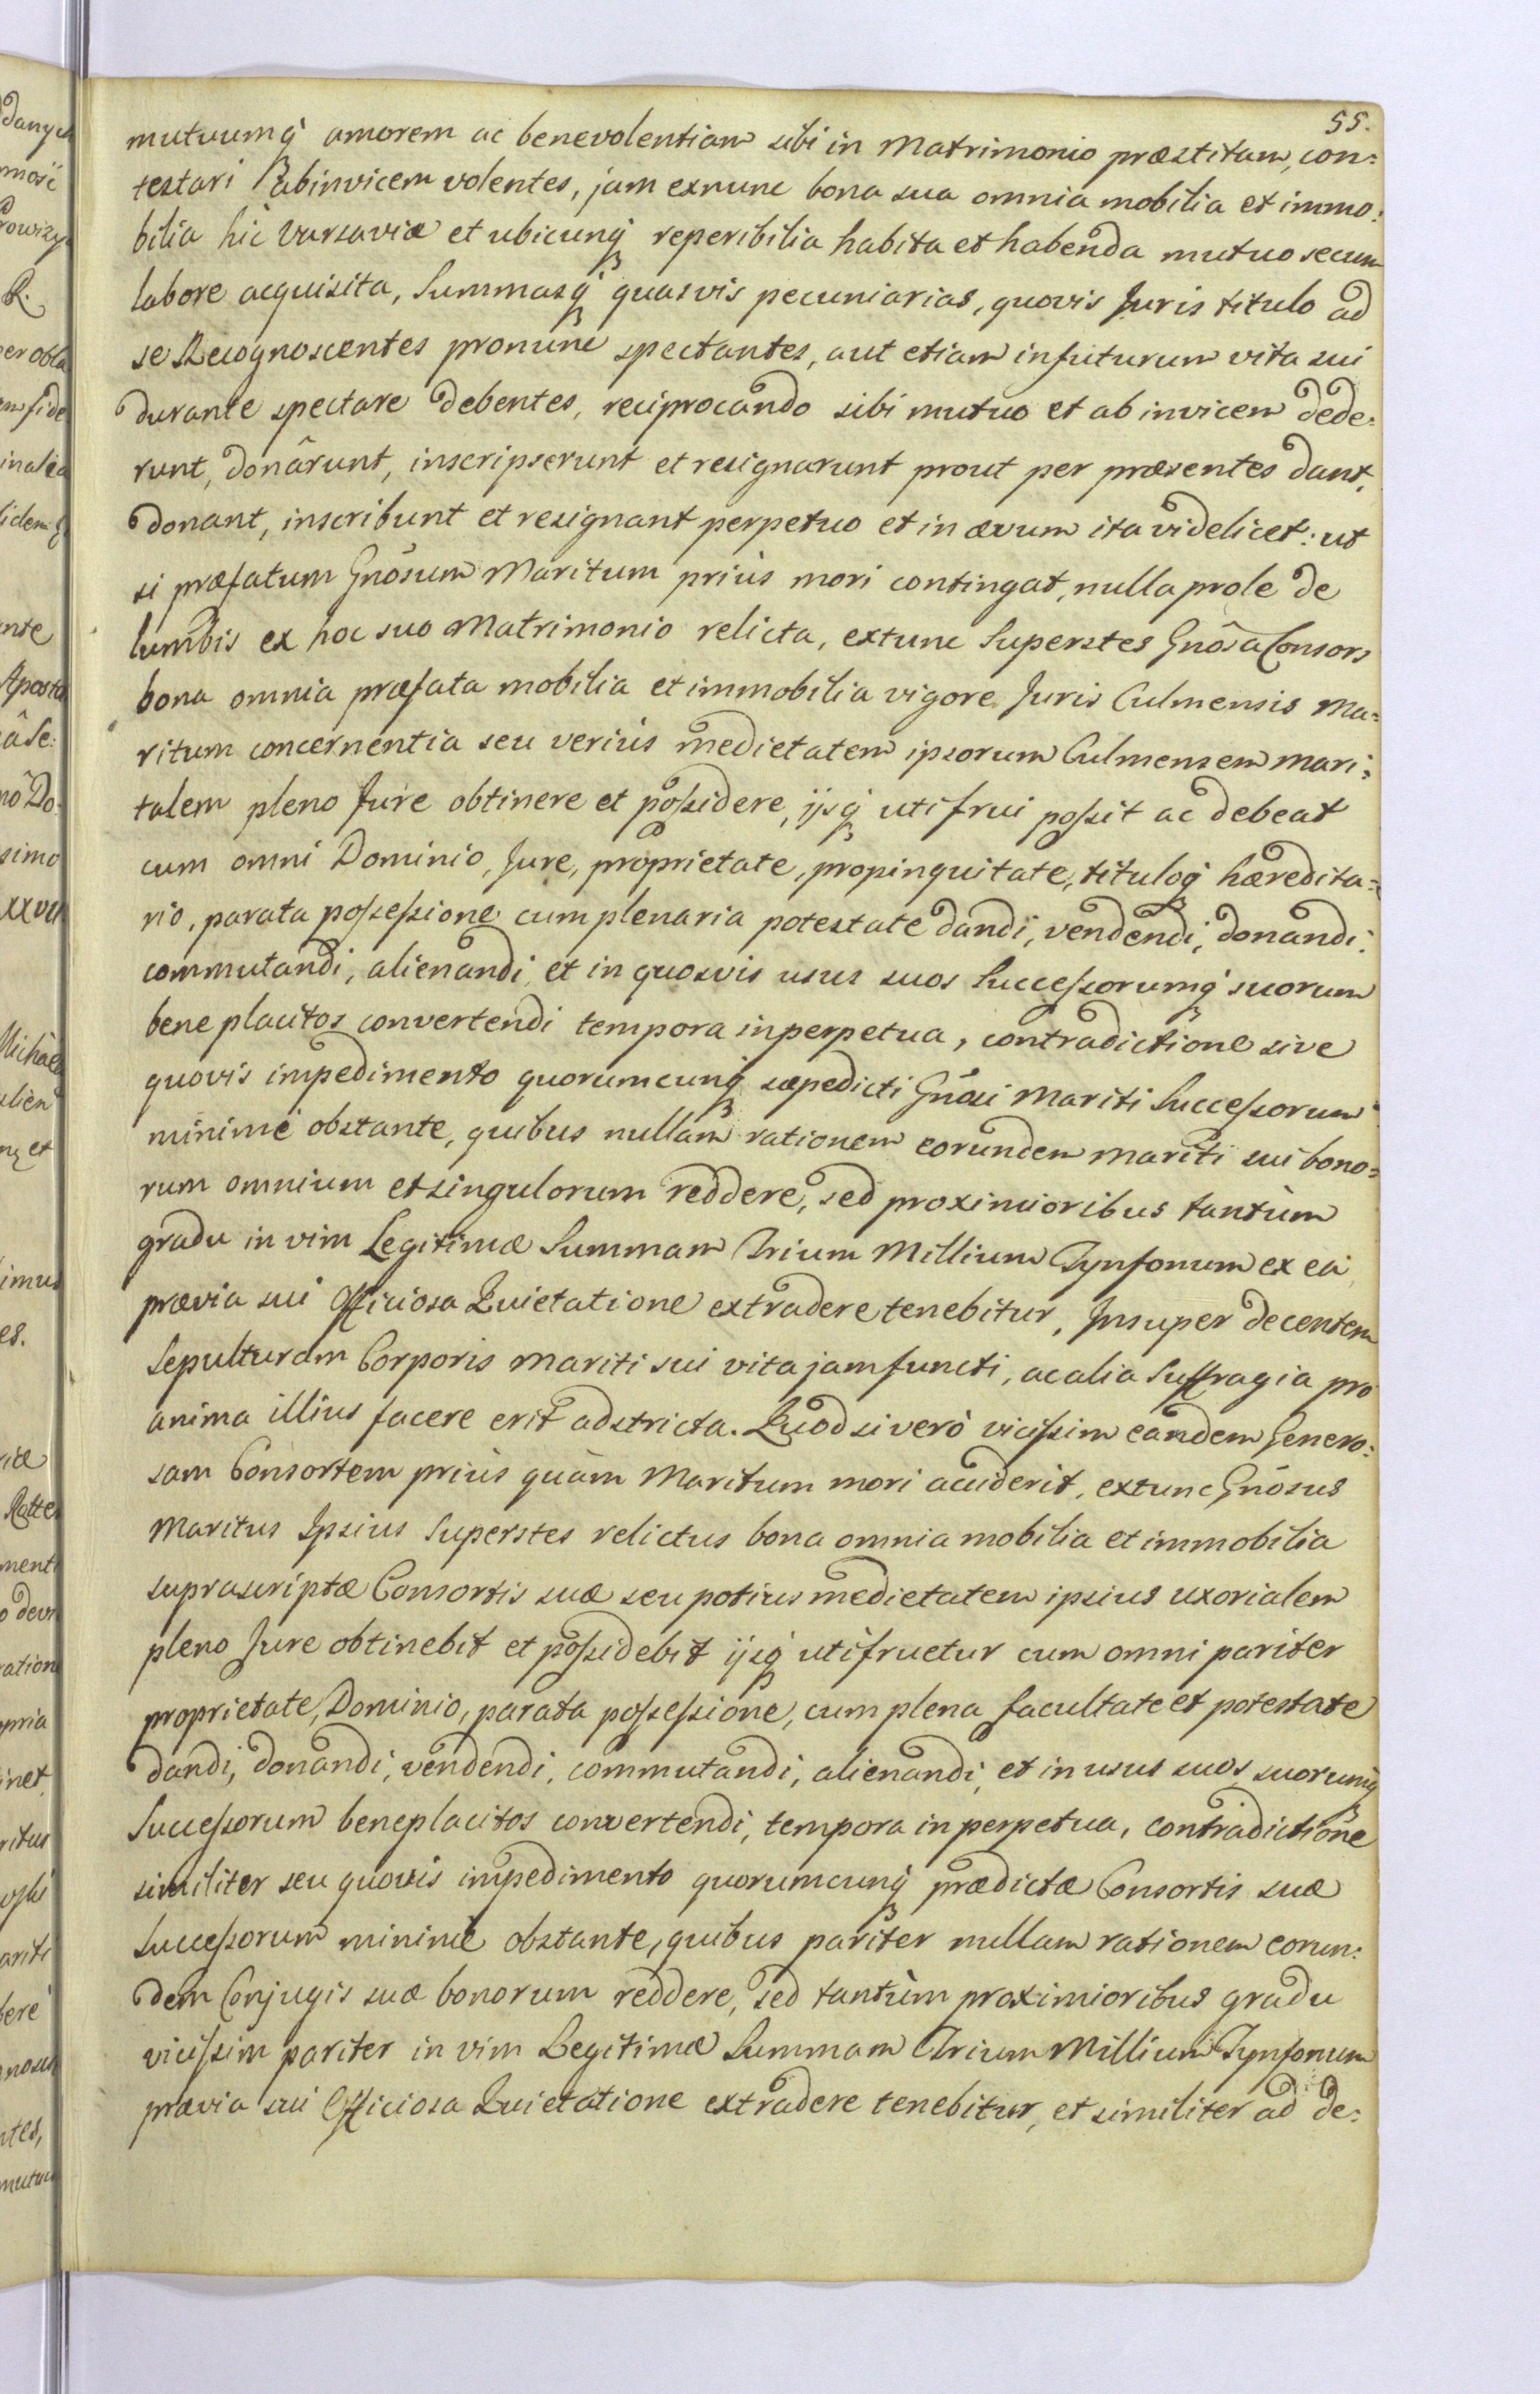 55.
mutuumq amorem ac benevolentiam sibi in Matrimonio præstitam, con=
testari abinvicem volentes, jam exnunc bona sua omnia mobilia et immo=
bilia hic Varsaviæ et ubicunq reperibilia habita et habenda mutuo secum
labore acquisita, Summasq quasvis pecuniarias, quovis Juris titulo ad
se Recognoscentes pronunc spectantes, aut etiam infuturum vita sui
durante spectare debentes, reciprocando sibi mutuo et ab invicem dede=
runt, donârunt, inscripserunt et resignarunt prout per præsentes dant,
donant, inscribunt et resignant perpetuo et in ævum ita videlicet: ut
si præfatum Gnõsum Maritum priùs mori contingat, nulla prole de
lumbis ex hoc suo Matrimonio relicta, extunc Superstes Gnõsa Consors
bona omnia præfata mobilia et immobilia vigore Juris Culmensis Ma=
ritum concernentia seu veriùs medietatem ipsorum Culmensem mari=
talem pleno Jure obtinere et possidere, ijsq uti frui possit ac debeat
cum omni Dominio, Jure, proprietate, propinquitate, tituloq hæredita=
rio, parata possessione cum plenaria potestate dandi, vendendi, donandi,
commutandi, alienandi, et in quosvis usus suos Successorumq suorum
bene placitos convertendi tempora inperpetua, contradictione sive
quovis impedimento quorumcunq sæpedicti Gnõsi Mariti Successorum
minimè obstante, quibus nullam rationem eorundem mariti sui bono=
rum omnium et singulorum reddere, sed proximioribus tantùm
gradu in vim Legitimæ Summam Trium Millium Tynfonum ex ea
prævia sui Officiosa Quietatione extradere tenebitur, Insuper decentem
Sepulturam Corporis mariti sui vita jam functi, ac alia Suffragia pro
anima illius facere erit adstricta. Quod si verò vicissim eandem Genero=
sam Consortem priùs quàm Maritum mori acciderit, extunc Gnõsus
Maritus Ipsius Superstes relictus bona omnia mobilia et immobilia
suprascriptæ Consortis suæ seu potius medietatem ipsius uxorialem
pleno Jure obtinebit et possidebit ijsq utifruetur cum omni pariter
proprietate, Dominio, parata possessione, cum plena facultate et potestate
dandi, donandi, vendendi, commutandi, alienandi, et in usus suos suorumq
Successorum beneplacitos convertendi, tempora in perpetua, contradictione
similiter seu quovis impedimento quorumcunq prædictæ Consortis suæ
Successorum minimè obstante, quibus pariter nullam rationem eorun=
dem Conjugis suæ bonorum reddere, sed tantùm proximioribus gradu
vicissim pariter in vim Legitimæ Summam Trium Millium Tynfonum
prævia sui Officiosa Quietatione extradere tenebitur, et similiter ad de=